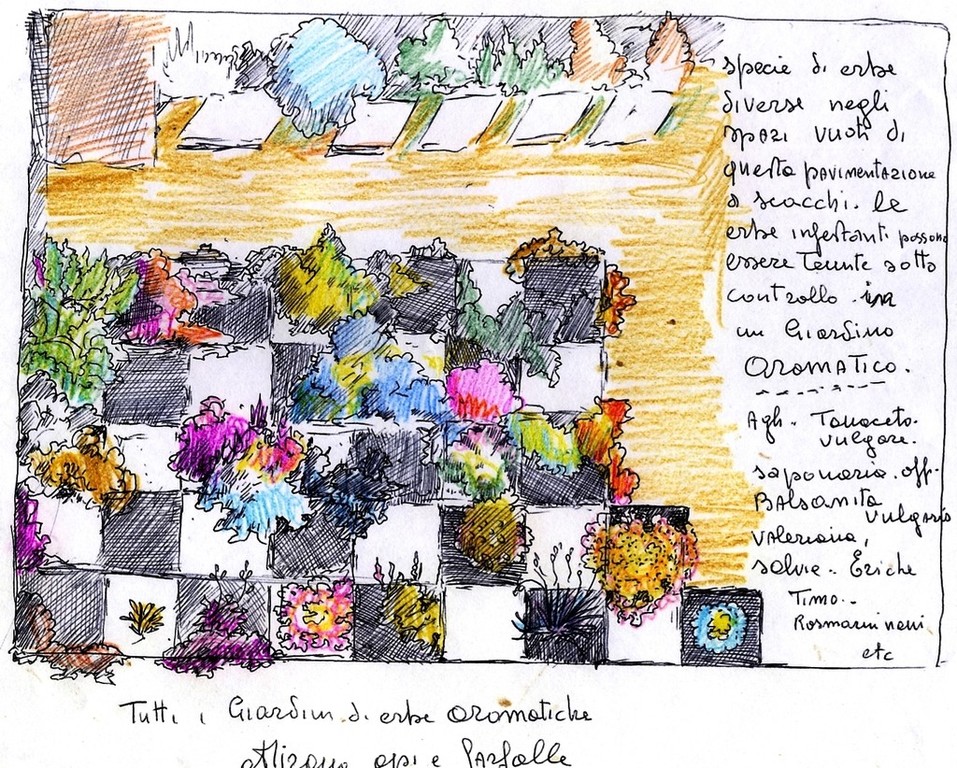 specie di erbe
diverse negli
spazi vuoti di
questa pavimentazione
a scacchi. le
erbe infestanti possono
essere Tenute sotto
controllo. in
un Giardino
AROMATICO.
Agli. Tanaceto.
vulgare.
saponaria. off.
BALSAMITA
vulgaris
VALERIANA,
salvie. Eriche
Timo..
Rosmarini nani
etc
TuTTi i Giardini di erbe aromatiche
Attirano api e farfalle